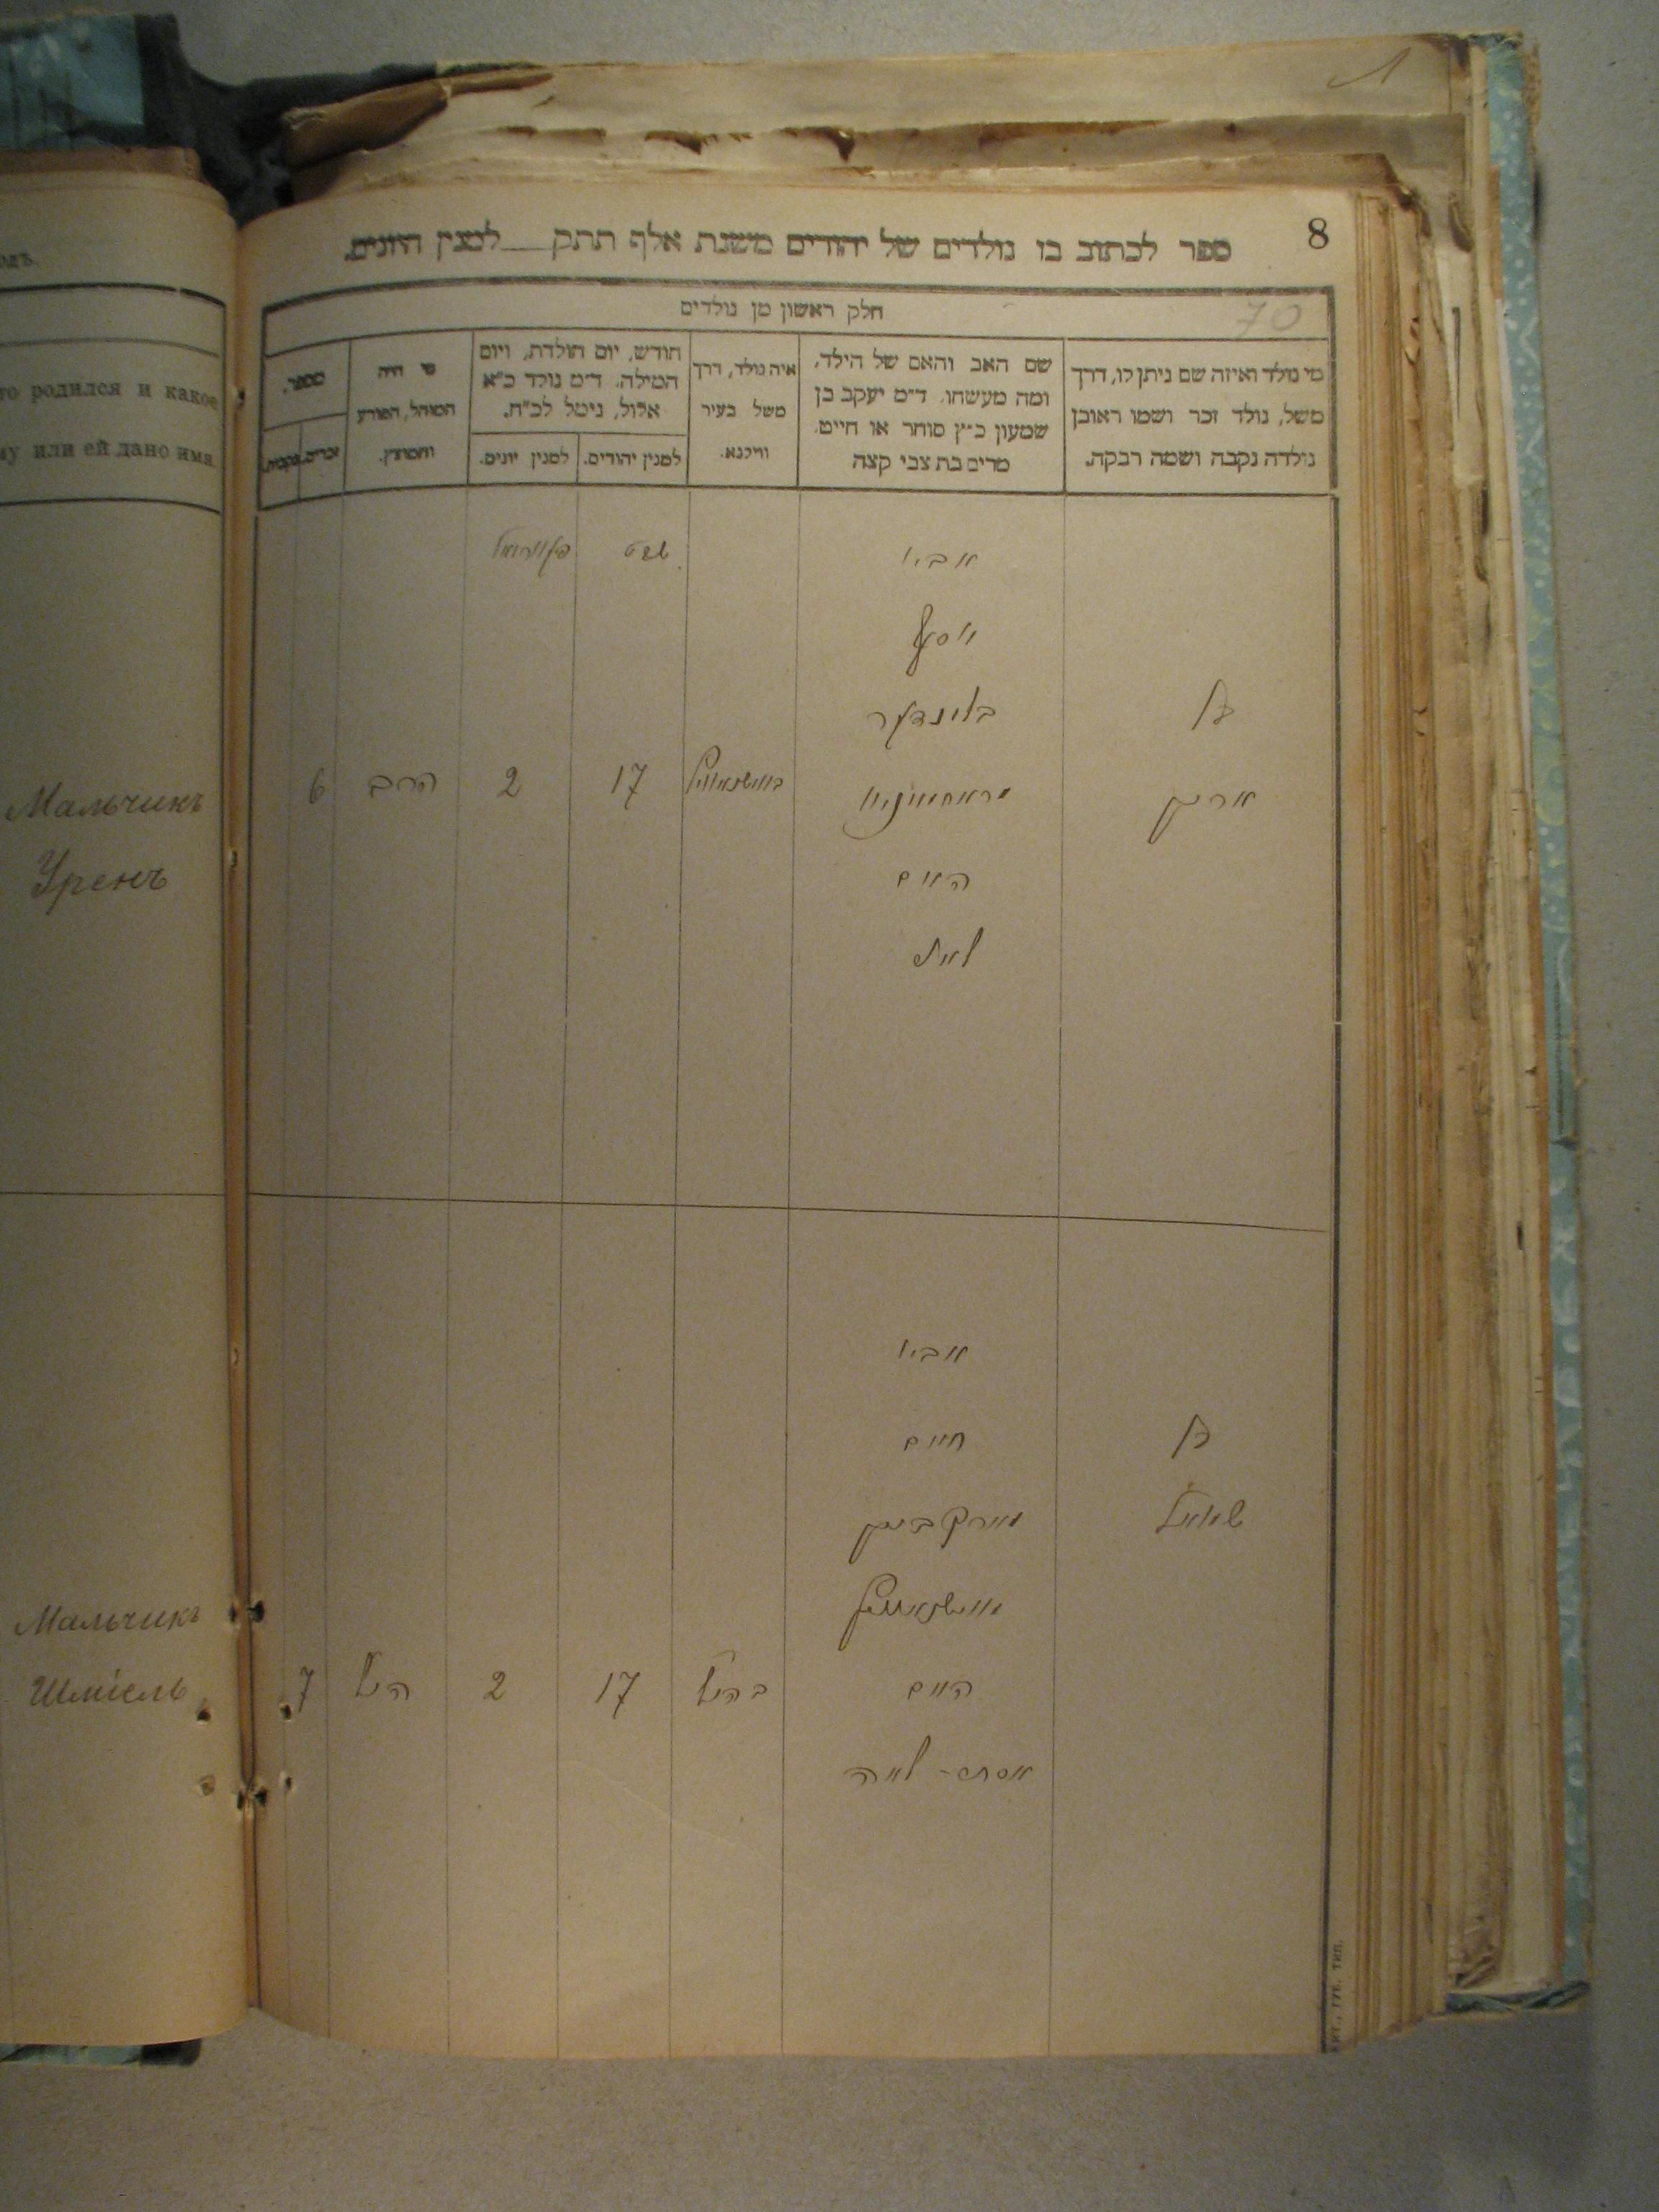 8
ספר לכתוב בו נולדים של יהודים משנת אלף תתק למנין היונים.
70
חלק ראשון מן נולדים
מי נולד ואיזה שם ניתן לו, דרך
משל, נולד זכר ושמו ראובן
נולדה נקבה ושמה רבקה.
שם האב והאם של הילד,
ומה מעשהו. ד״מ יעקב בן
שמעון כ״ץ סוחר או חייט.
מרים בת צבי קצה
איה נולד, דרך
משל בעיר
ווילנא.
חודש, יום הולדת, ויום
המילה. ד״מ נולד כ״א
אלול, נימל לכ״ח.
למנין יהודים.
למנין יונים.
מי היה
המוהל, הפורע
והמוצץ.
מספר.
זכרים.
נקבות.
שבט
אביו
יוסף
בלינדער
בן
ארון
17
2
הרב
6
האם
לאה
אביו
חיים
בן
שמואל
האם
בהנ״ל
17
2
הנ״ל
7
אסתר - לאה
мъ.
то родился и какое
му или ей дано имя.
Мальчикъ
Уренъ
Мальчикъ
Шміель